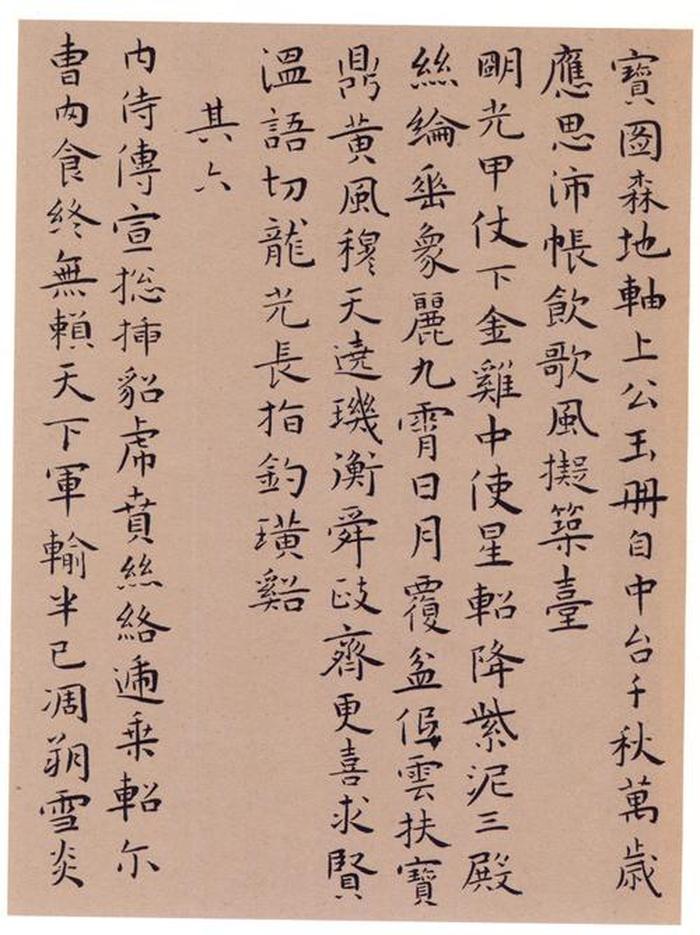 寶圖森地軸上公玉冊自中台千秋萬歲
應思沛帳飲歌風擬築臺
明光甲仗下金雞中使星軺降紫泥三殿
絲綸垂象麗九霄日月覆盆低雲扶寶
鼎黃風穆天遶璣衡舜政齊更喜求賢
溫語切龍光長指釣璜谿
其六
內侍傳宣揔插貂虎賁絲絡遞乘軺尔
曹肉食終無賴天下軍輸半已凋朔雪炎